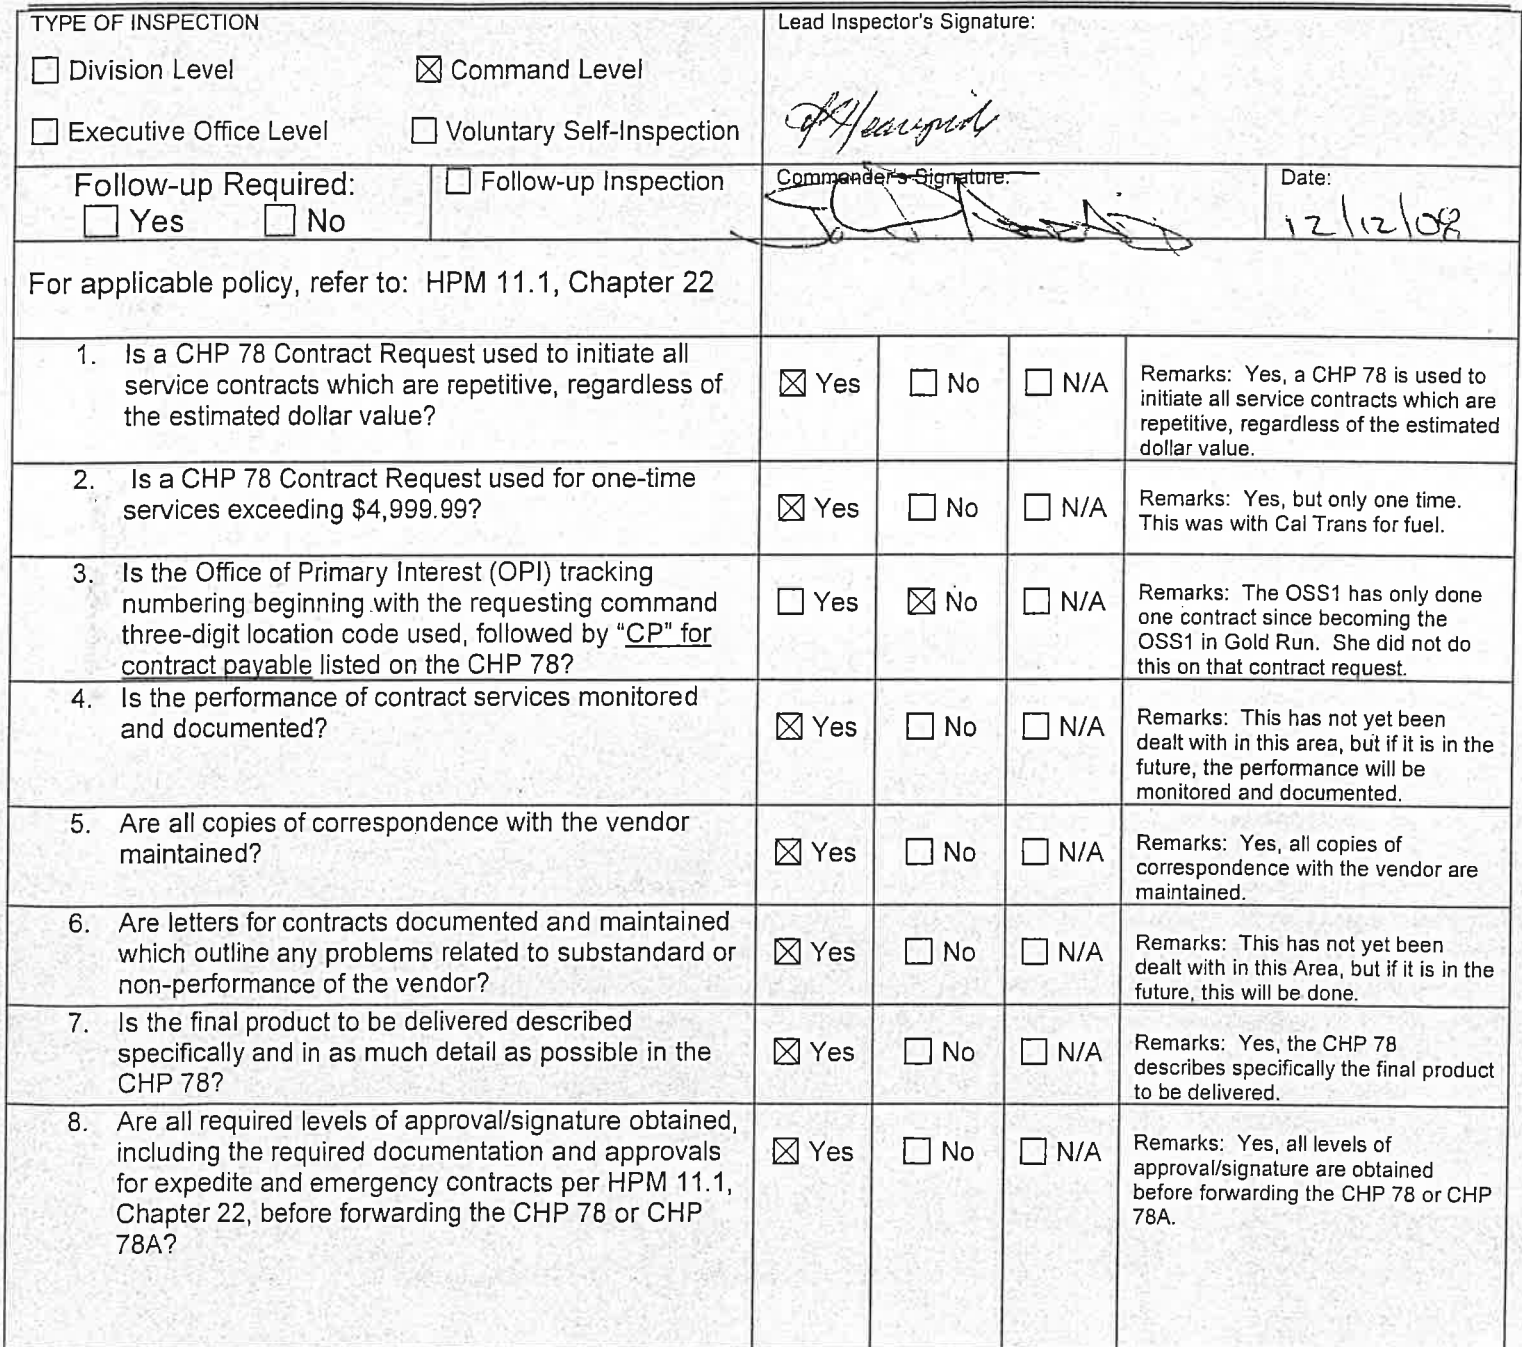 TYPE OF INSPECTION
☐ Division Level ☒ Command Level
☐ Executive Office Level ☐ Voluntary Self-Inspection
Lead Inspector's Signature:
Follow-up Required:
☐ Yes ☐ No
☐ Follow-up Inspection
Commander's Signature:
Date:
12/12/08
For applicable policy, refer to: HPM 11.1, Chapter 22
1. Is a CHP 78 Contract Request used to initiate all
service contracts which are repetitive, regardless of
the estimated dollar value?
☒ Yes ☐ No ☐ N/A
Remarks: Yes, a CHP 78 is used to
initiate all service contracts which are
repetitive, regardless of the estimated
dollar value.
2. Is a CHP 78 Contract Request used for one-time
services exceeding $4,999.99?
☒ Yes ☐ No ☐ N/A
Remarks: Yes, but only one time.
This was with Cal Trans for fuel.
3. Is the Office of Primary Interest (OPI) tracking
numbering beginning with the requesting command
three-digit location code used, followed by "CP" for
contract payable listed on the CHP 78?
☐ Yes ☒ No ☐ N/A
Remarks: The OSS1 has only done
one contract since becoming the
OSS1 in Gold Run. She did not do
this on that contract request.
4. Is the performance of contract services monitored
and documented?
☒ Yes ☐ No ☐ N/A
Remarks: This has not yet been
dealt with in this area, but if it is in the
future, the performance will be
monitored and documented.
5. Are all copies of correspondence with the vendor
maintained?
☒ Yes ☐ No ☐ N/A
Remarks: Yes, all copies of
correspondence with the vendor are
maintained.
6. Are letters for contracts documented and maintained
which outline any problems related to substandard or
non-performance of the vendor?
☒ Yes ☐ No ☐ N/A
Remarks: This has not yet been
dealt with in this Area, but if it is in the
future, this will be done.
7. Is the final product to be delivered described
specifically and in as much detail as possible in the
CHP 78?
☒ Yes ☐ No ☐ N/A
Remarks: Yes, the CHP 78
describes specifically the final product
to be delivered.
8. Are all required levels of approval/signature obtained,
including the required documentation and approvals
for expedite and emergency contracts per HPM 11.1,
Chapter 22, before forwarding the CHP 78 or CHP
78A?
☒ Yes ☐ No ☐ N/A
Remarks: Yes, all levels of
approval/signature are obtained
before forwarding the CHP 78 or CHP
78A.